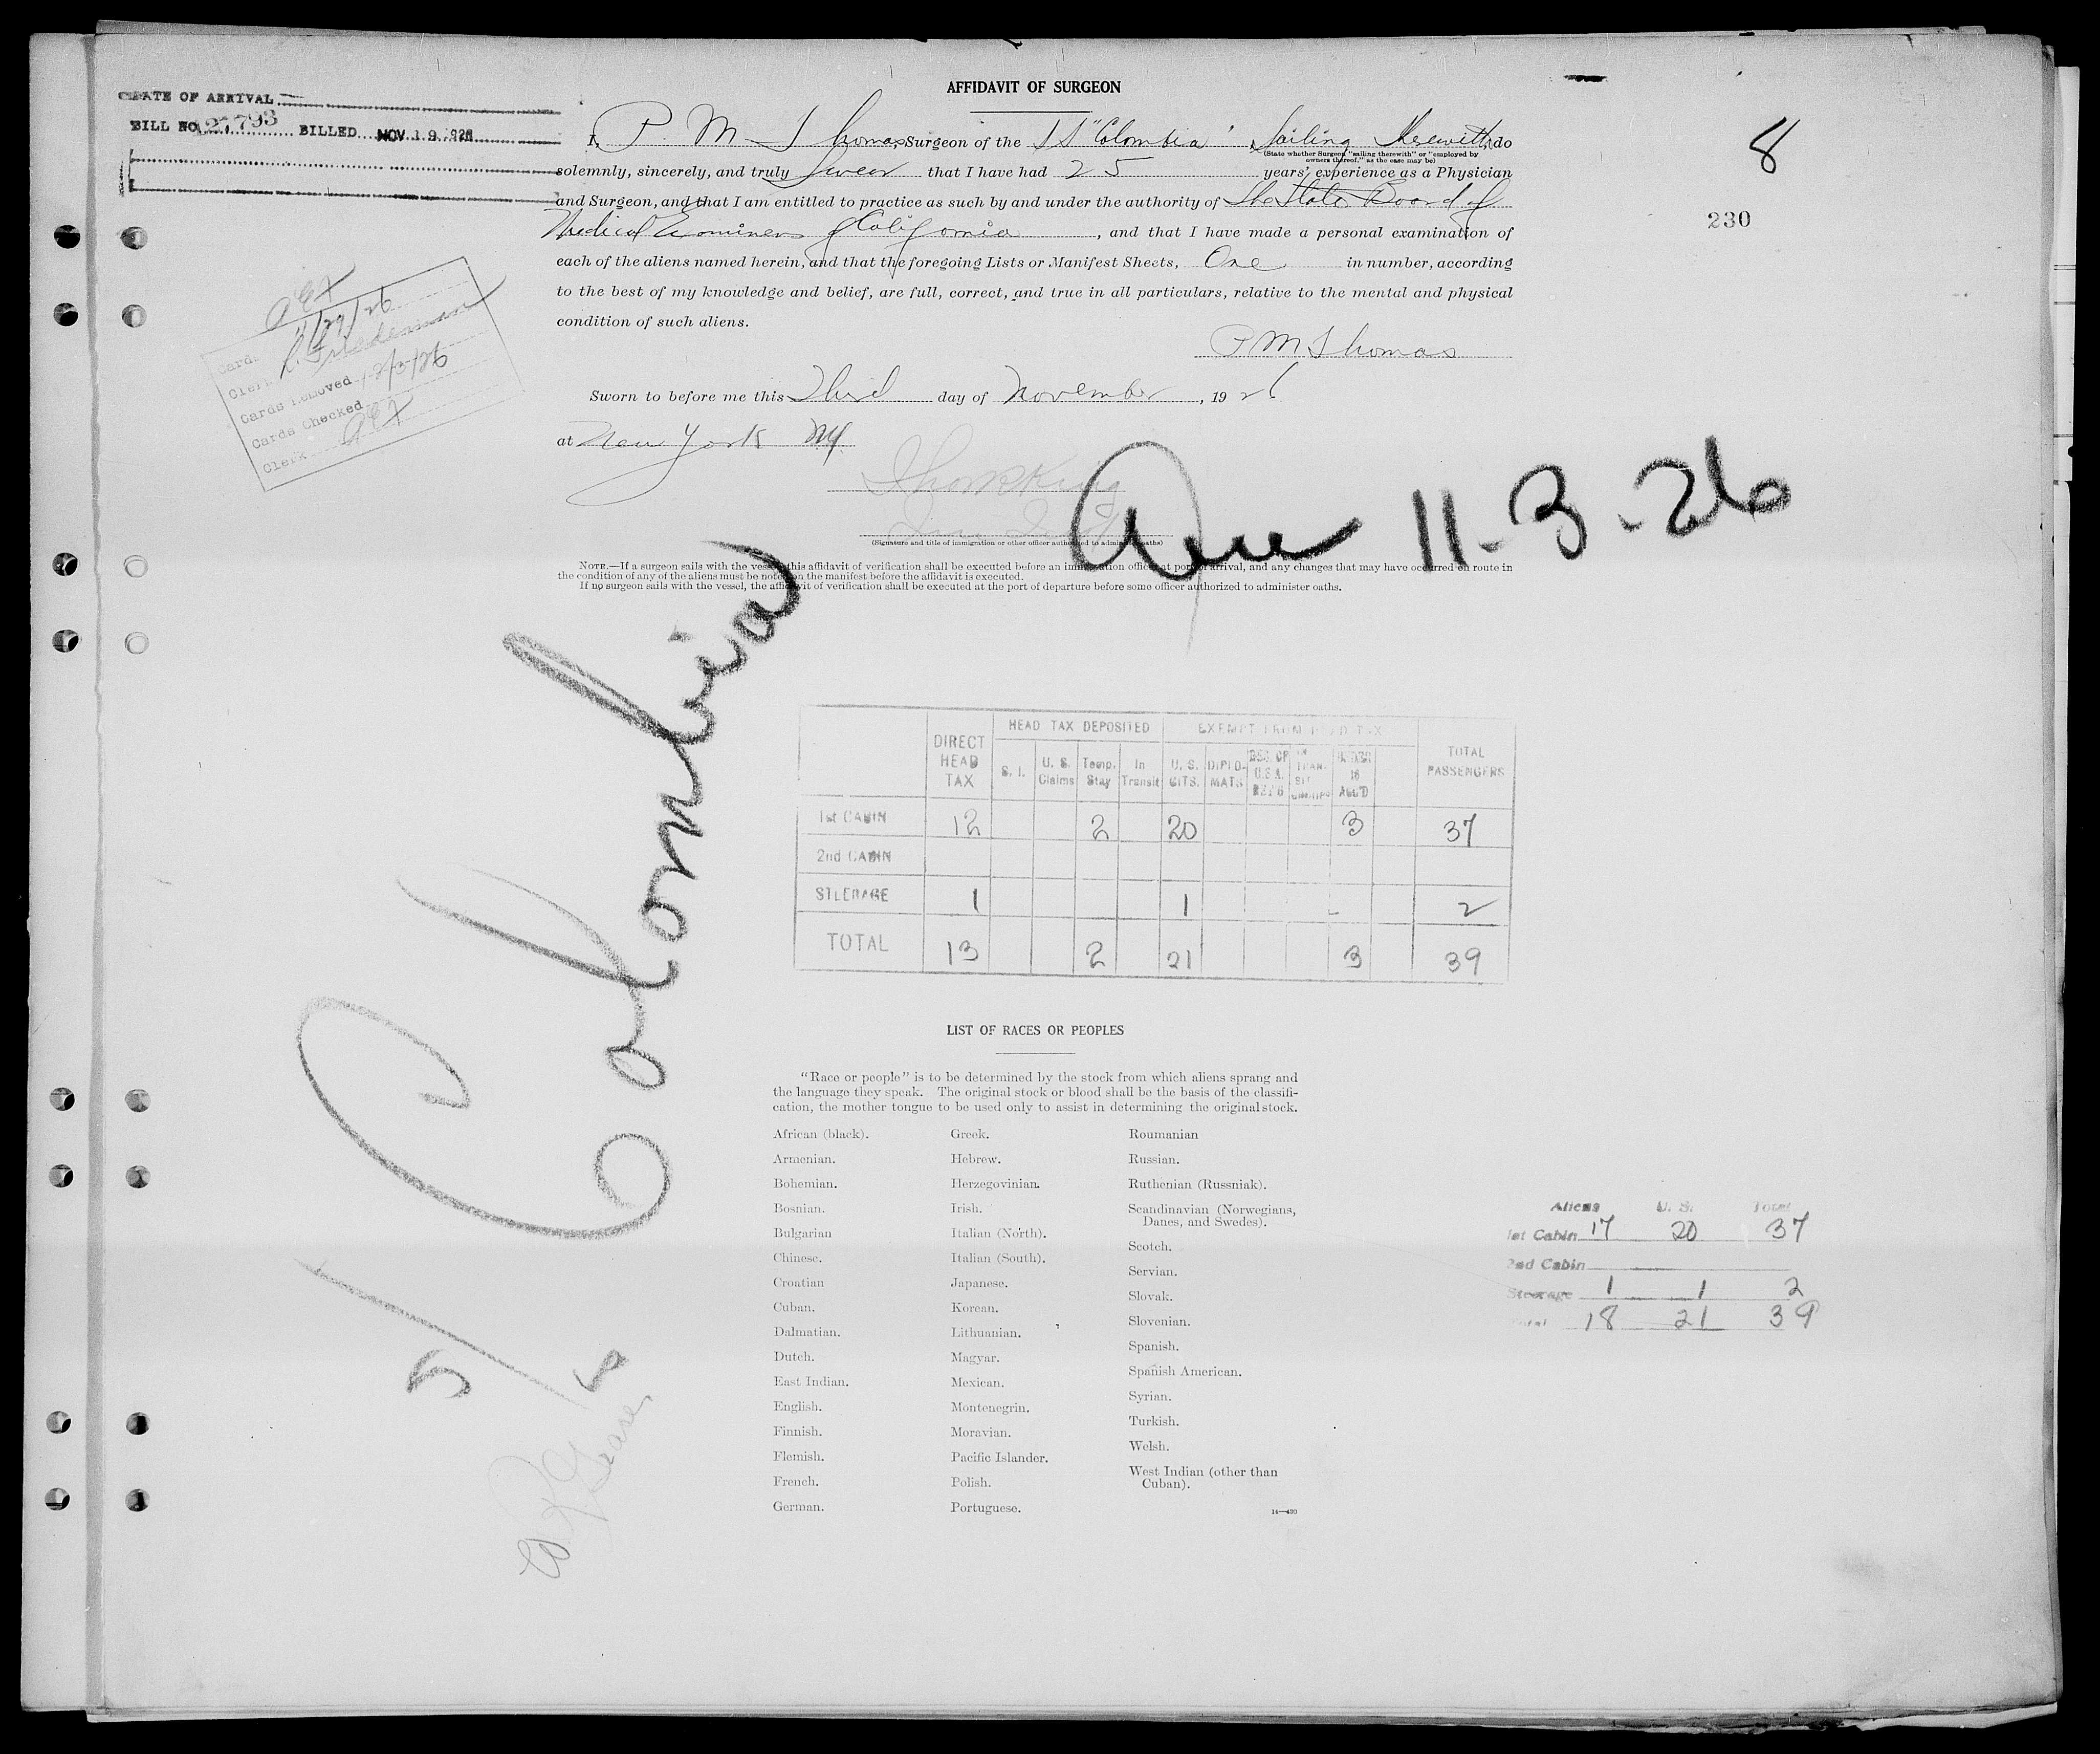 AFFIDAVIT OF SURGEON
DATE OF ARRIVAL
BILL NO. 127793 BILLED NOV 19 1926
8
230
I, P. M. Thomas Surgeon of the SS "Colombia", Sailing therewith, do
(State whether Surgeon "sailing therewith" or "employed by
owners thereof," as the case may be)
solemnly, sincerely, and truly Swear that I have had 25 years' experience as a Physician
and Surgeon, and that I am entitled to practice as such by and under the authority of The State Board of
Medical Examiners of California, and that I have made a personal examination of
each of the aliens named herein, and that the foregoing Lists or Manifest Sheets, One in number, according
to the best of my knowledge and belief, are full, correct, and true in all particulars, relative to the mental and physical
condition of such aliens.
P M Thomas
Sworn to before me this Third day of November, 1926
at New York NY
(Signature and title of immigration or other officer authorized to administer oaths)
Card
Clerk Friedman
Cards Removed
Cards Checked
Clerk
Arr 11-3-26
NOTE.—If a surgeon sails with the vessel, this affidavit of verification shall be executed before an immigration officer at port of arrival, and any changes that may have occurred en route in
the condition of any of the aliens must be noted on the manifest before the affidavit is executed.
If no surgeon sails with the vessel, the affidavit of verification shall be executed at the port of departure before some officer authorized to administer oaths.
Colombia
DIRECT HEAD TAX
HEAD TAX DEPOSITED
EXEMPT FROM HEAD TAX
TOTAL PASSENGERS
S. I. U. S. Claims Temp. Stay In Transit U. S. CITS. DIPLO-MATS UNDER 16 ACC'D
1st CABIN 12 2 20 3 37
2nd CABIN
STEERAGE 1 1 - 2
TOTAL 13 2 21 3 39
LIST OF RACES OR PEOPLES
"Race or people" is to be determined by the stock from which aliens sprang and
the language they speak. The original stock or blood shall be the basis of the classifi-
cation, the mother tongue to be used only to assist in determining the original stock.
African (black).
Armenian.
Bohemian.
Bosnian.
Bulgarian
Chinese.
Croatian
Cuban.
Dalmatian.
Dutch.
East Indian.
English.
Finnish.
Flemish.
French.
German.
Greek.
Hebrew.
Herzegovinian.
Irish.
Italian (North).
Italian (South).
Japanese.
Korean.
Lithuanian.
Magyar.
Mexican.
Montenegrin.
Moravian.
Pacific Islander.
Polish.
Portuguese.
Roumanian
Russian.
Ruthenian (Russniak).
Scandinavian (Norwegians,
Danes, and Swedes).
Scotch.
Servian.
Slovak.
Slovenian.
Spanish.
Spanish American.
Syrian.
Turkish.
Welsh.
West Indian (other than
Cuban).
Aliens U. S. Total
1st Cabin 17 20 37
2nd Cabin
Steerage 1 1 2
Total 18 21 39